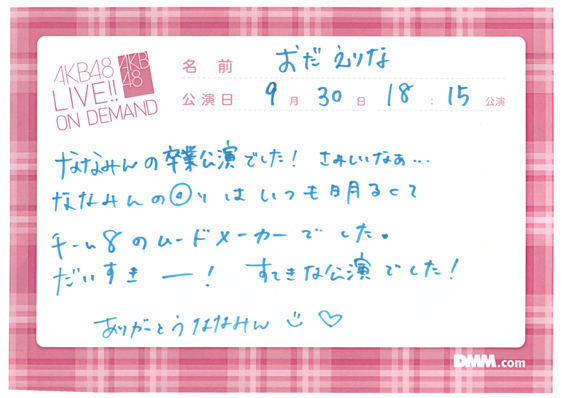 AKB48
LIVE!!
ON DEMAND
AKB
48
名前 おだえりな
公演日 9月30日 18:15公演
ななみんの卒業公演でした！ さみしいなぁ…
ななみんの◎りはいつも明るくて
チーム8のムードメーカーでした。
だいすきー！ すてきな公演でした！
ありがとうななみん
DMM.com